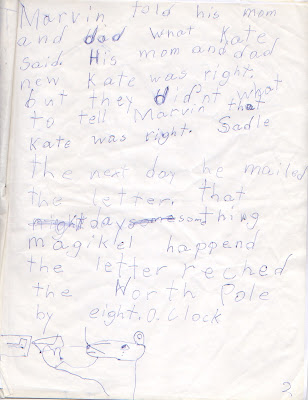 Marvin told his mom
and dad what Kate
said. His mom and dad
new Kate was right.
but they didnt what
to tell Marvin that
Kate was right. Sadle
the next day he mailed
the letter. that
night day some som thing
magikel happend
the letter reched
the North Pole
by eight.O.Clock
2